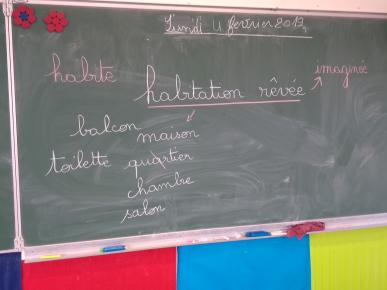 Lundi 4 février 2013
habite
imaginée
habitation rêvée
balcon
maison
toilette
quartier
chambre
salon